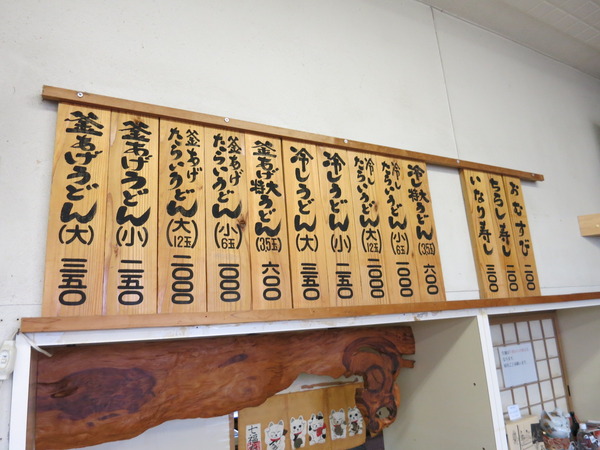 釜あげうどん(大) 三五〇
釜あげうどん(小) 二五〇
釜あげ
たらいうどん(大12玉) 二〇〇〇
釜あげ
たらいうどん(小6玉) 一〇〇〇
釜あげ特大うどん(3.5玉) 六〇〇
冷しうどん(大) 三五〇
冷しうどん(小) 二五〇
冷し
たらいうどん(大12玉) 二〇〇〇
冷し
たらいうどん(小6玉) 一〇〇〇
冷し特大うどん(3.5玉) 六〇〇
いなり寿し 三〇〇
ちらし寿し
おむすび
七福